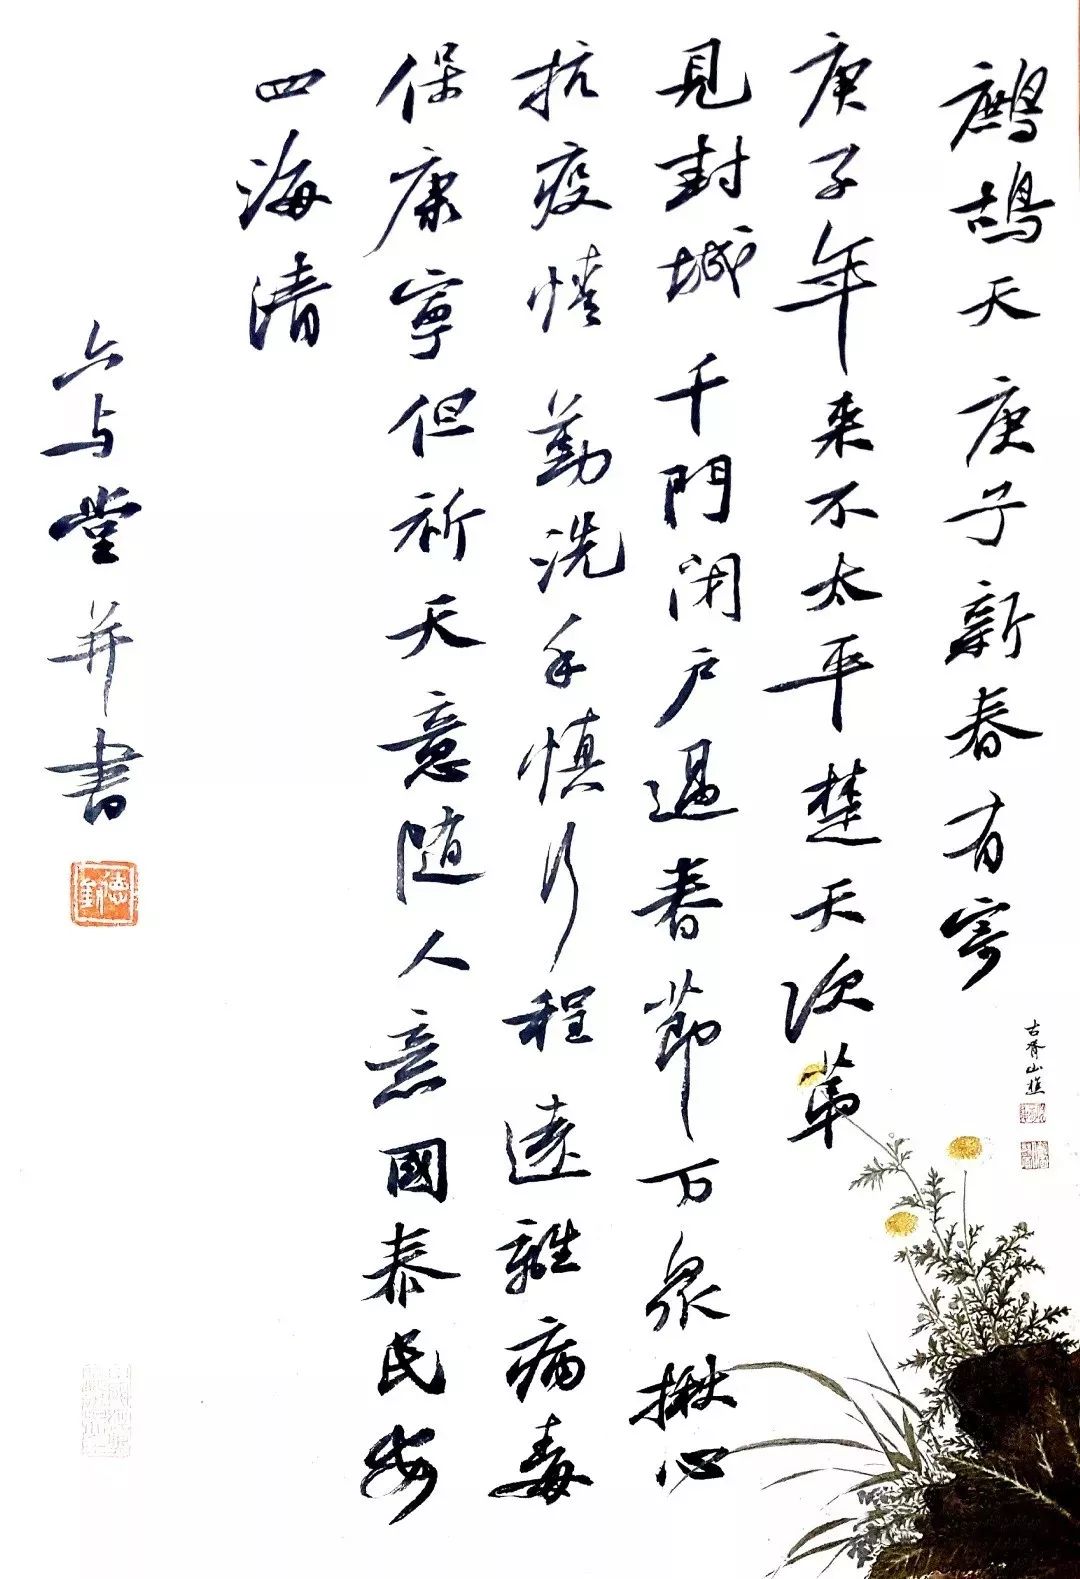 鷓鴣天 庚子新春有寄
庚子年来不太平楚天次第
見封城 千門闭户過春節万衆揪心
抗疫情 勤洗手慎行程遠離病毒
保康寧但祈天意随人意國泰民安
四海清
六与堂并書
古脊山樵